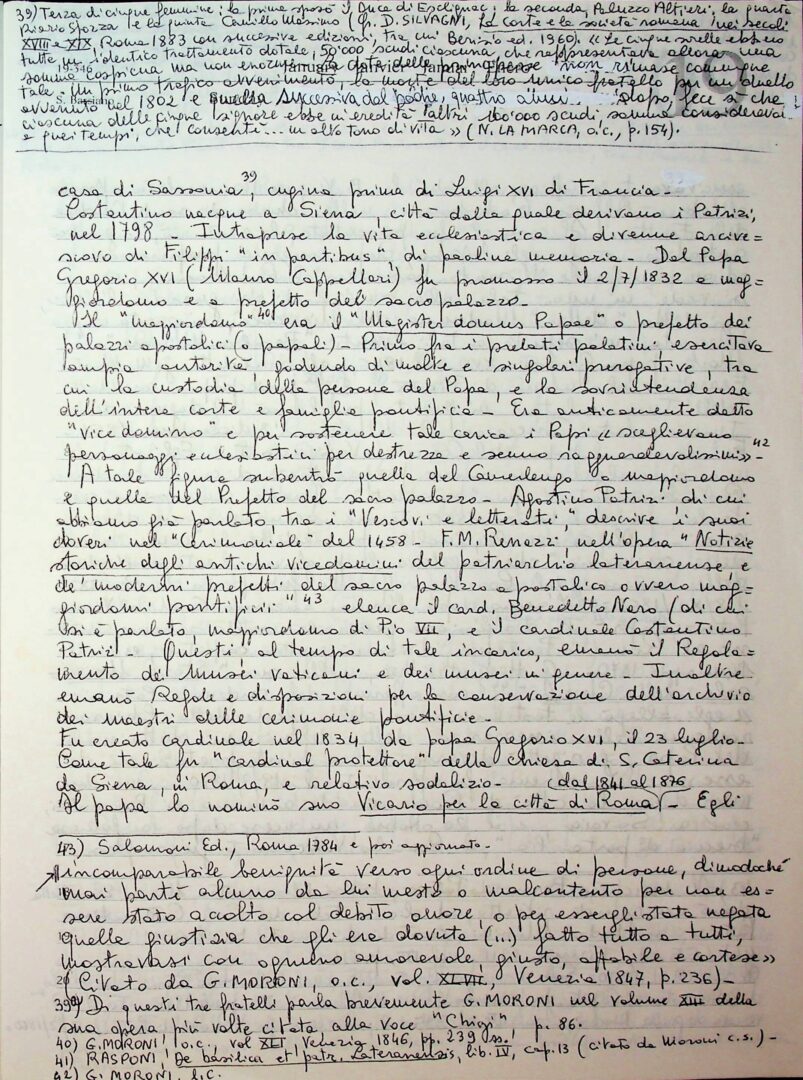 39) Terza di cinque femmine; la prima sposò il Duca di Esclignac; la seconda, Paluzzo Altieri, la quarta
Riario Sforza e la quinta Camillo Massimo (Cfr. D. SILVAGNI, La corte e la società romana nei secoli
XVIII e XIX, Roma 1883 con successive edizioni, tra cui ed. 1960). «Le cinque sorelle ebbero
tutte un identico trattamento dotale, 50'000 scudi ciascuna che rappresentava allora una
somma cospicua ma non enorme. La dote delle principesse non rimase comunque
tale. Un primo tragico avvenimento, la morte del loro unico fratello per un duello
avvenuto nel 1802 e quella successiva del padre, quattro anni dopo, fece sì che
ciascuna delle cinque signore ebbe in eredità altri 100'000 scudi somma considerevole
a quei tempi, che consentì... un alto tono di vita» (N. LA MARCA, o.c., p. 154).
casa di Sassonia 39, cugina prima di Luigi XVI di Francia -
Costantino nacque a Siena, città dalla quale derivano i Patrizi,
nel 1798 - Intraprese la vita ecclesiastica e divenne arcive=
scovo di Filippi "in partibus", di paolina memoria - Dal Papa
Gregorio XVI (Mauro Cappellari) fu promosso il 2/7/1832 a mag=
giordomo e a prefetto del sacro palazzo -
Il "maggiordomo" 40 era il "Magister domus Papae" o prefetto dei
palazzi apostolici (o papali) - Primo fra i prelati palatini, esercitava
ampia autorità, godendo di molte e singolari prerogative, tra
cui la custodia della persona del Papa, e la sovrintendenza
dell'intera corte e famiglia pontificia - Era anticamente detto
"vice domino" e per sostenere tale carica i Papi «sceglievano
personaggi ecclesiastici per destrezza e senno ragguardevolissimi» 42 -
A tale figura subentrò quella del Camerlengo o maggiordomo
e quella del Prefetto del sacro palazzo - Agostino Patrizi, di cui
abbiamo già parlato, tra i "Vescovi e letterati", descrive i suoi
doveri nel "Cerimoniale" del 1458 - F.M. Renazzi, nell'opera "Notizie
storiche degli antichi vicedomini del patriarchio lateranense, e
de' moderni prefetti del sacro palazzo apostolico ovvero mag=
giordomi pontificii" 43 elenca il card. Benedetto Naro (di cui
si è parlato, maggiordomo di Pio VII, e il cardinale Costantino
Patrizi - Questi, al tempo di tale incarico, emanò il Regola=
mento de' Musei vaticani e dei musei in genere - Inoltre
emanò Regole e disposizioni per la conservazione dell'archivio
dei maestri delle cerimonie pontificie -
Fu creato cardinale nel 1834, da papa Gregorio XVI, il 23 luglio -
Come tale fu "cardinal protettore" della chiesa di S. Caterina
da Siena, in Roma, e relativo sodalizio - (dal 1841 al 1876
Il papa lo nominò suo Vicario per la città di Roma) - Egli
43) Salomoni Ed., Roma 1784 e poi aggiornato -
incomparabile benignità verso ogni ordine di persone, dimodoché
mai partì alcuno da lui mesto o malcontento per non es=
sere stato accolto col debito onore, o per essergli stata negata
quella giustizia che gli era dovuta (...) fatto tutto a tutti,
mostravasi con ognuno amorevole, giusto, affabile e cortese»
(Citato da G. MORONI, o.c., vol. XLVII, Venezia 1847, p. 236) -
39a) Di questi tre fratelli parla brevemente G. MORONI nel volume XIII della
sua opera più volte citata alla voce "Chigi" p. 86.
40) G. MORONI, o.c., vol XLI, Venezia 1846, pp. 239 ss.
41) RASPONI, De basilica et patr. Lateranensis, lib. IV, cap. 13 (citato da Moroni c.s.) -
42) G. MORONI, l.c.